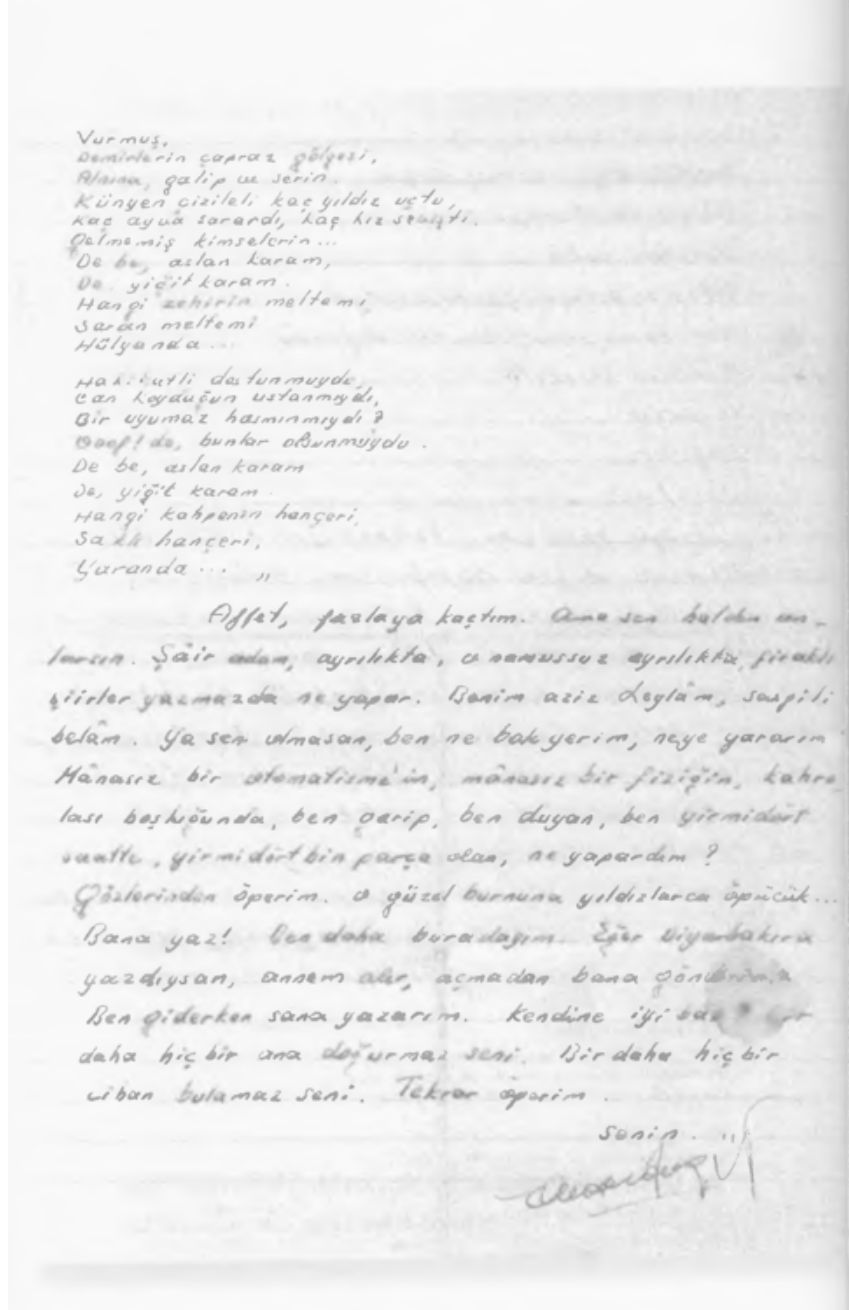 Vurmuş,
Demirlerin çapraz gölgesi,
Alnına, galip ve serin.
Künyen çizileli kaç yıldız uçtu,
Kaç ayva sarardı, kaç kız sevişti.
Gelmemiş kimselerin...
De be, aslan karam,
De yiğit karam.
Hangi zehirin meltemi,
Saran meltemi
Hülyanda...
Hakikatli dostunmuydu,
Can koyduğun ustanmıydı,
Bir uyumaz hasmınmıydı?
Ooof! de, bunlar olsunmuydu.
De be, aslan karam
De, yiğit karam.
Hangi kahpenin hançeri,
Saklı hançeri,
Yaranda... "
Affet, fazlaya kaçtım. Ama sen halden an-
larsın. Şâir adam, ayrılıkta, o namussuz ayrılıkta, firaklı
şiirler yazmazda ne yapar. Benim aziz Leylâm,
belâm. Ya sen olmasan, ben ne bok yerim, neye yararım
Mânasız bir otomatisme'in, mânasız bir fiziğin, kahro
lası boşluğunda, ben garip, ben duyan, ben yirmidört
saatte, yirmidört bin parça olan, ne yapardım?
Gözlerinden öperim. O güzel burnuna yıldızlarca öpücük...
Bana yaz! Ben daha buradayım. Eğer Diyarbakıra
yazdıysan, annem alır, açmadan bana gönderir.
Ben giderken sana yazarım. Kendine iyi bak! Bir
daha hiç bir ana doğurmaz seni. Bir daha hiç bir
ciban bulamaz seni. Tekrar öperim.
Senin...